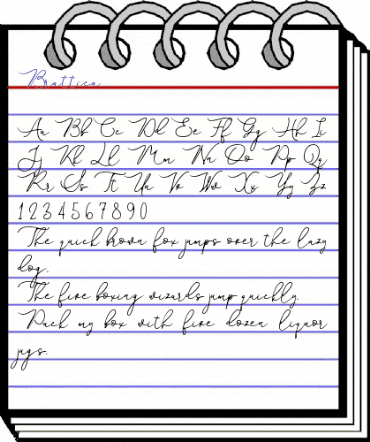 Brattica
Aa Bb Cc Dd Ee Ff Gg Hh Ii
Jj Kk Ll Mm Nn Oo Pp Qq
Rr Ss Tt Uu Vv Ww Xx Yy Zz
1234567890
The quick brown fox jumps over the lazy
dog.
The five boxing wizards jump quickly.
Pack my box with five dozen liquor
jugs.